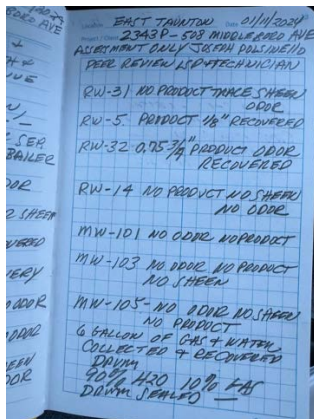 Location EAST TAUNTON Date 01/11/2024
Project / Client 2343P-508 MIDDLEBORO AVE
ASSESMENT ONLY JOSEPH POLSINELLO
PEER REVIEW LSP & TECHNICIAN
RW-31 NO PRODUCT TRACE SHEEN
ODOR
RW-5 PRODUCT 1/8" RECOVERED
RW-32 0.75 3/4" PRODUCT ODOR
RECOVERED
RW-14 NO PRODUCT NO SHEEN
NO ODOR
MW-101 NO ODOR NO PRODUCT
MW-103 NO ODOR NO PRODUCT
NO SHEEN
MW-105- NO ODOR NO SHEEN
NO PRODUCT
6 GALLON OF GAS & WATER
COLLECTED & RECOVERED
DRUM
90% H20 10% GAS
DRUM SEALED —
BORO AVE
SEP.
BAILER
ODOR
SHEEN
ODOR
ODOR